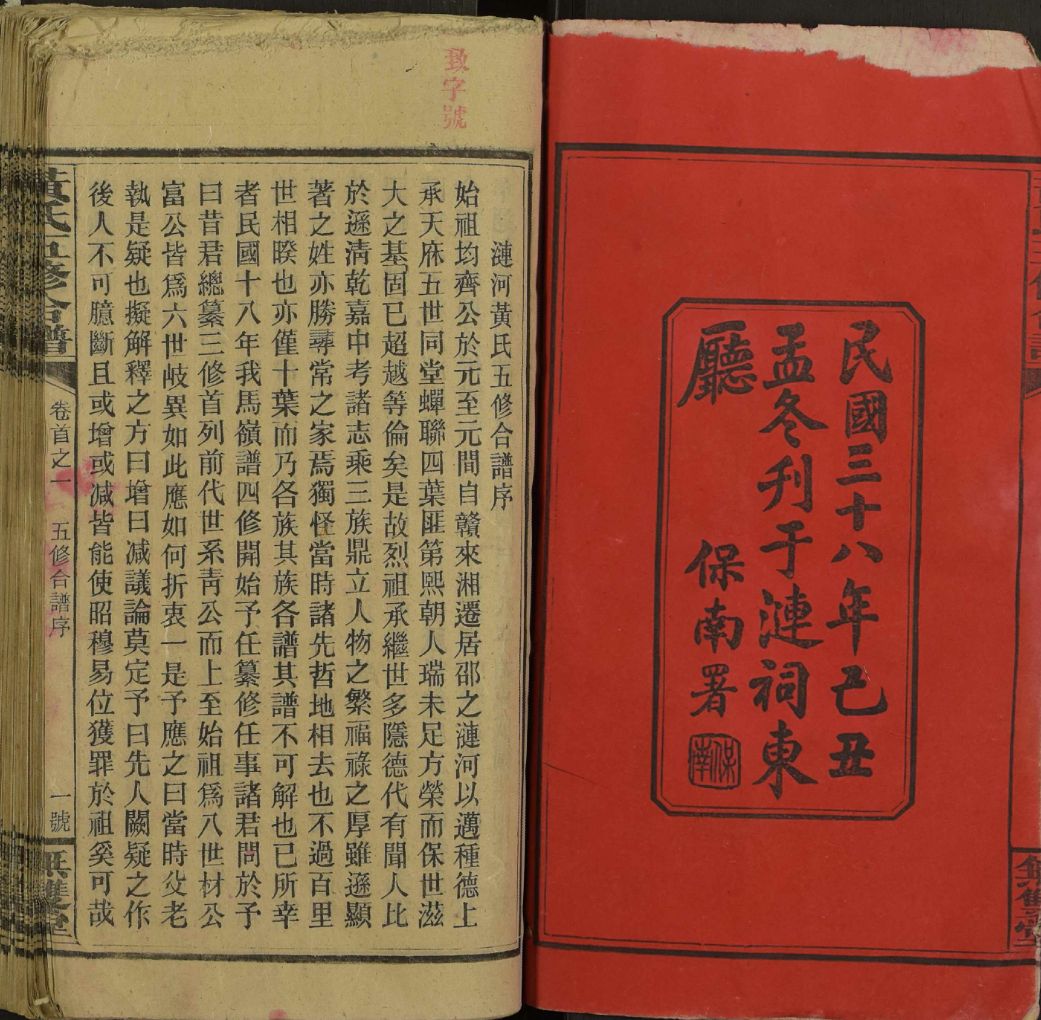 民國三十八年己丑
孟冬刋于漣祠東
廳
保南署
保南
無雙堂
敦字號
漣河黃氏五修合譜序
始祖均齊公於元至元間自贛來湘遷居邵之漣河以邁種德上
承天庥五世同堂蟬聯四葉匪第熙朝人瑞未足方榮而保世滋
大之基固已超越等倫矣是故烈祖承繼世多隱德代有聞人比
於遜清乾嘉中考諸志乘三族鼎立人物之繁福祿之厚雖遜顯
著之姓亦勝尋常之家焉獨怪當時諸先哲地相去也不過百里
世相暌也亦僅十葉而乃各族其族各譜其譜不可解也已所幸
者民國十八年我馬嶺譜四修開始予任纂修任事諸君問於予
曰昔君總纂三修首列前代世系靑公而上至始祖爲八世材公
富公皆爲六世岐異如此應如何折衷一是予應之曰當時父老
執是疑也擬解釋之方曰增曰减議論莫定予曰先人闕疑之作
後人不可臆斷且或增或减皆能使昭穆易位獲罪於祖奚可哉
黃氏五修合譜
卷首之一
五修合譜序
一號
無雙堂